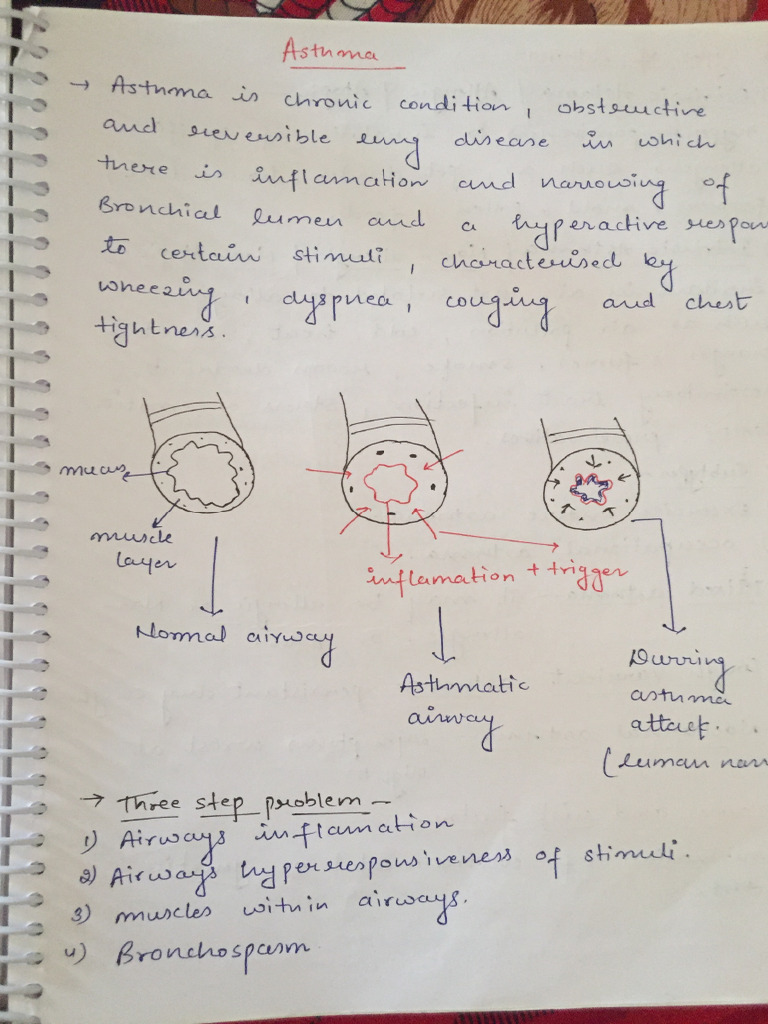 Asthma
→ Asthma is chronic condition, obstructive
and reversible lung disease in which
there is inflamation and narrowing of
Bronchial lumen and a hyperactive respon
to certain stimuli, characterised by
wheezing, dyspnea, couging and chest
tightness.
mucus
muscle
layer
inflamation + trigger
Normal airway
Asthmatic
airway
Durring
asthma
attack.
(luman narr
→ Three step problem –
1) Airways inflamation
2) Airways hyperresponsiveness of stimuli.
3) muscles within airways.
4) Bronchospasm